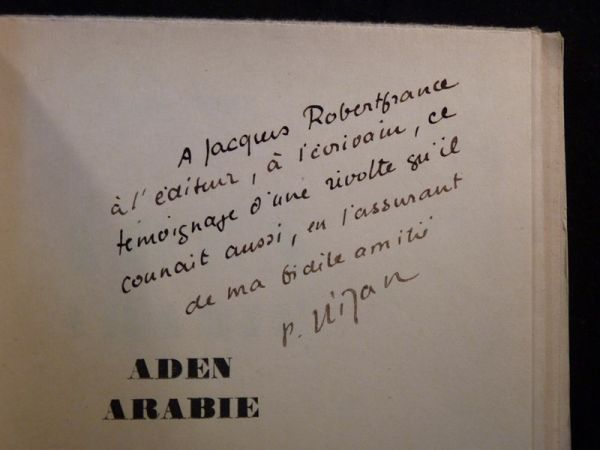 A Jacques Robertfrance
à l'éditeur, à l'écrivain, ce
témoignage d'une révolte qu'il
connait aussi, en l'assurant
de ma fidèle amitié
P. Nizan
ADEN
ARABIE